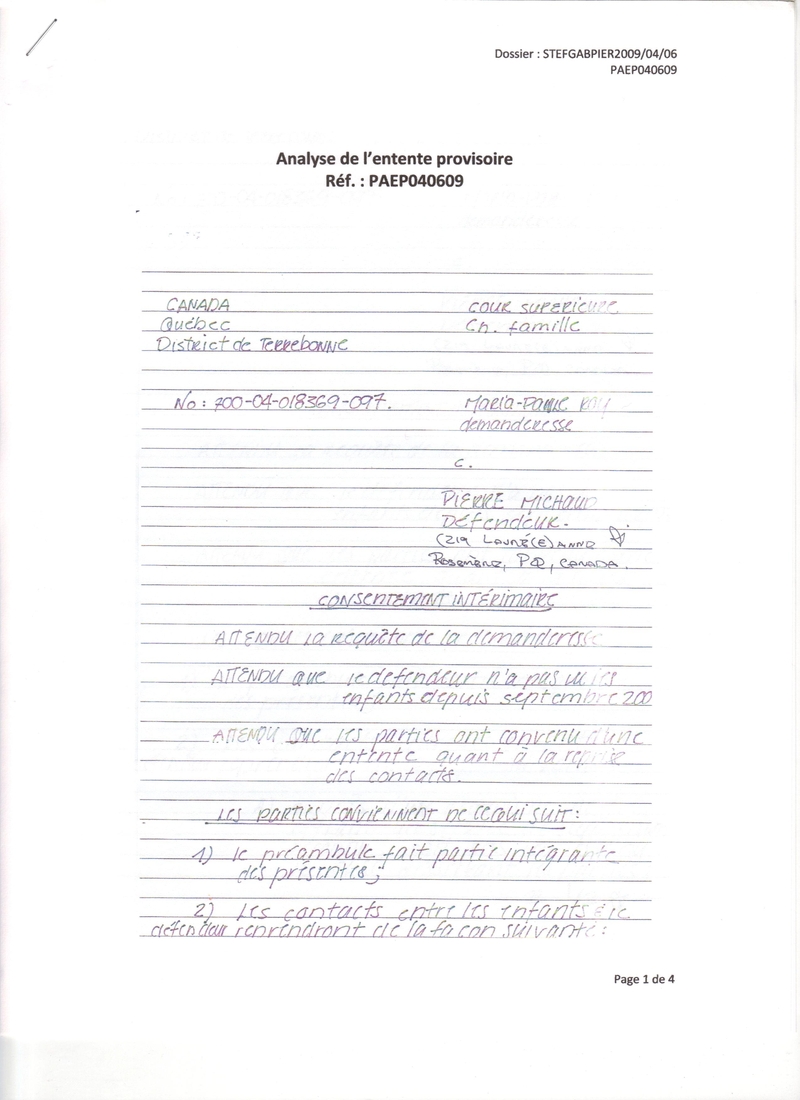 Dossier : STEFGABPIER2009/04/06
PAEP040609
Analyse de l'entente provisoire
Réf. : PAEP040609
CANADA
Québec
District de TERREBONNE
COUR SUPERIEURE
Ch. famille
No : 700-04-018369-097.
MARIA-PAULE
demanderesse
c.
PIERRE MICHAUD
Défendeur.
(219 ANNE
PQ, CANADA.
CONSENTEMENT INTÉRIMAIRE
ATTENDU la requête de la demanderesse
ATTENDU que le défendeur n'a pas vu les
enfants depuis septembre 200
ATTENDU QUE les parties ont convenu d'une
entente quant à la reprise
des contacts.
LES PARTIES CONVIENNENT DE CE QUI SUIT :
1) le préambule fait partie intégrante
des présentes ;
2) Les contacts entre les enfants & le
défendeur reprendront de la façon suivante :
Page 1 de 4